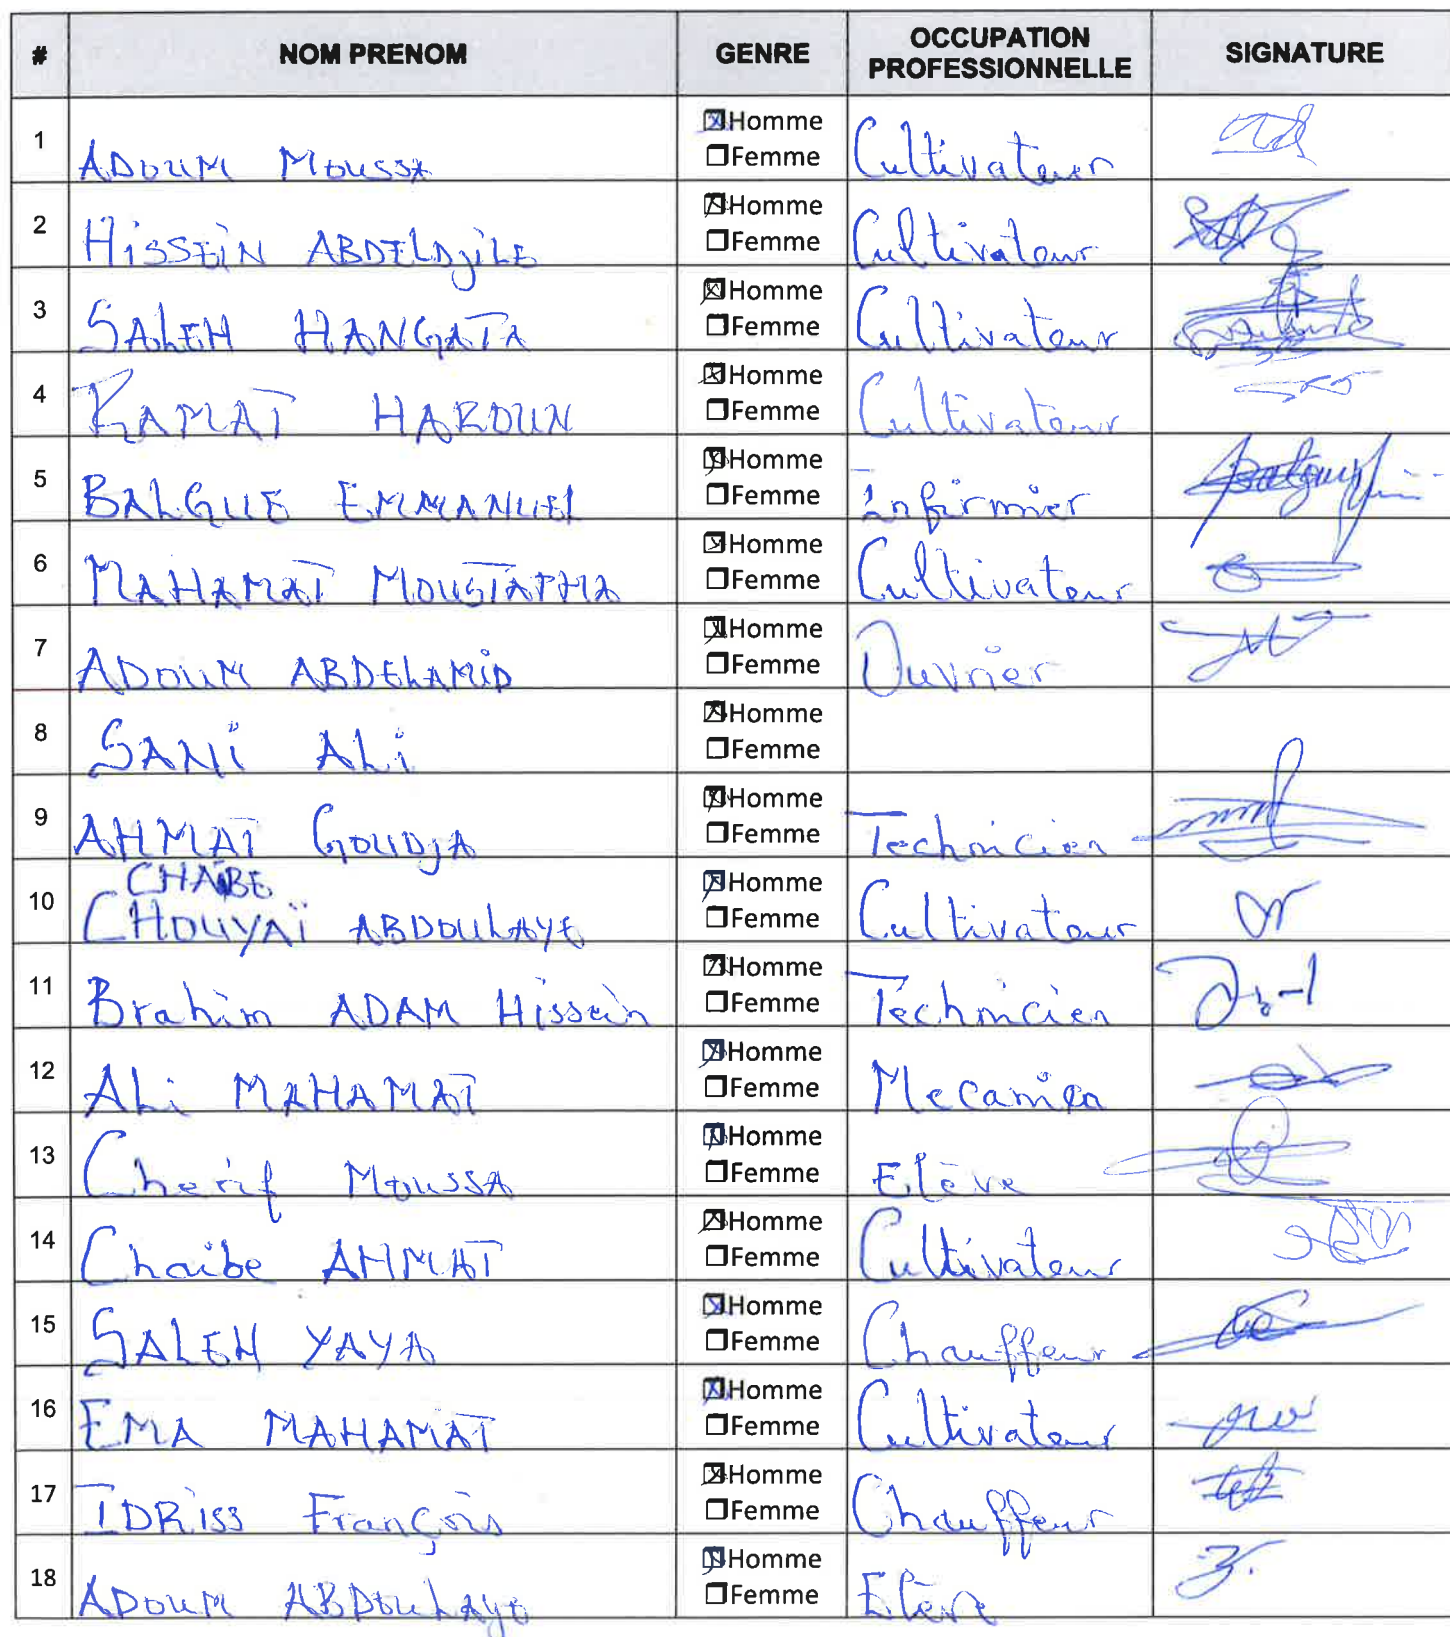 # NOM PRENOM GENRE OCCUPATION PROFESSIONNELLE SIGNATURE
1 ADOUM MOUSSA ☒Homme ☐Femme Cultivateur
2 HISSEIN ABDELDJILE ☒Homme ☐Femme Cultivateur
3 SALEH HANGATA ☒Homme ☐Femme Cultivateur
4 RAMAT HAROUN ☒Homme ☐Femme Cultivateur
5 BALGUE EMMANUEL ☒Homme ☐Femme Infirmier
6 MAHAMAT MOUSTAPHA ☒Homme ☐Femme Cultivateur
7 ADOUM ABDELAMID ☒Homme ☐Femme Ouvrier
8 SANI ALI ☒Homme ☐Femme
9 AHMAT GOUDJA ☒Homme ☐Femme Technicien
CHAIBE
10 CHOUYAÏ ABDOULAYE ☒Homme ☐Femme Cultivateur
11 Brahim ADAM Hissein ☒Homme ☐Femme Technicien
12 ALI MAHAMAT ☒Homme ☐Femme
13 Cherif MOUSSA ☒Homme ☐Femme Elève
14 Chaibe AHMAT ☒Homme ☐Femme Cultivateur
15 SALEH YAYA ☒Homme ☐Femme Chauffeur
16 EMA MAHAMAT ☒Homme ☐Femme Cultivateur
17 IDRISS François ☒Homme ☐Femme Chauffeur
18 ADOUM ABDOULAYE ☒Homme ☐Femme Elève